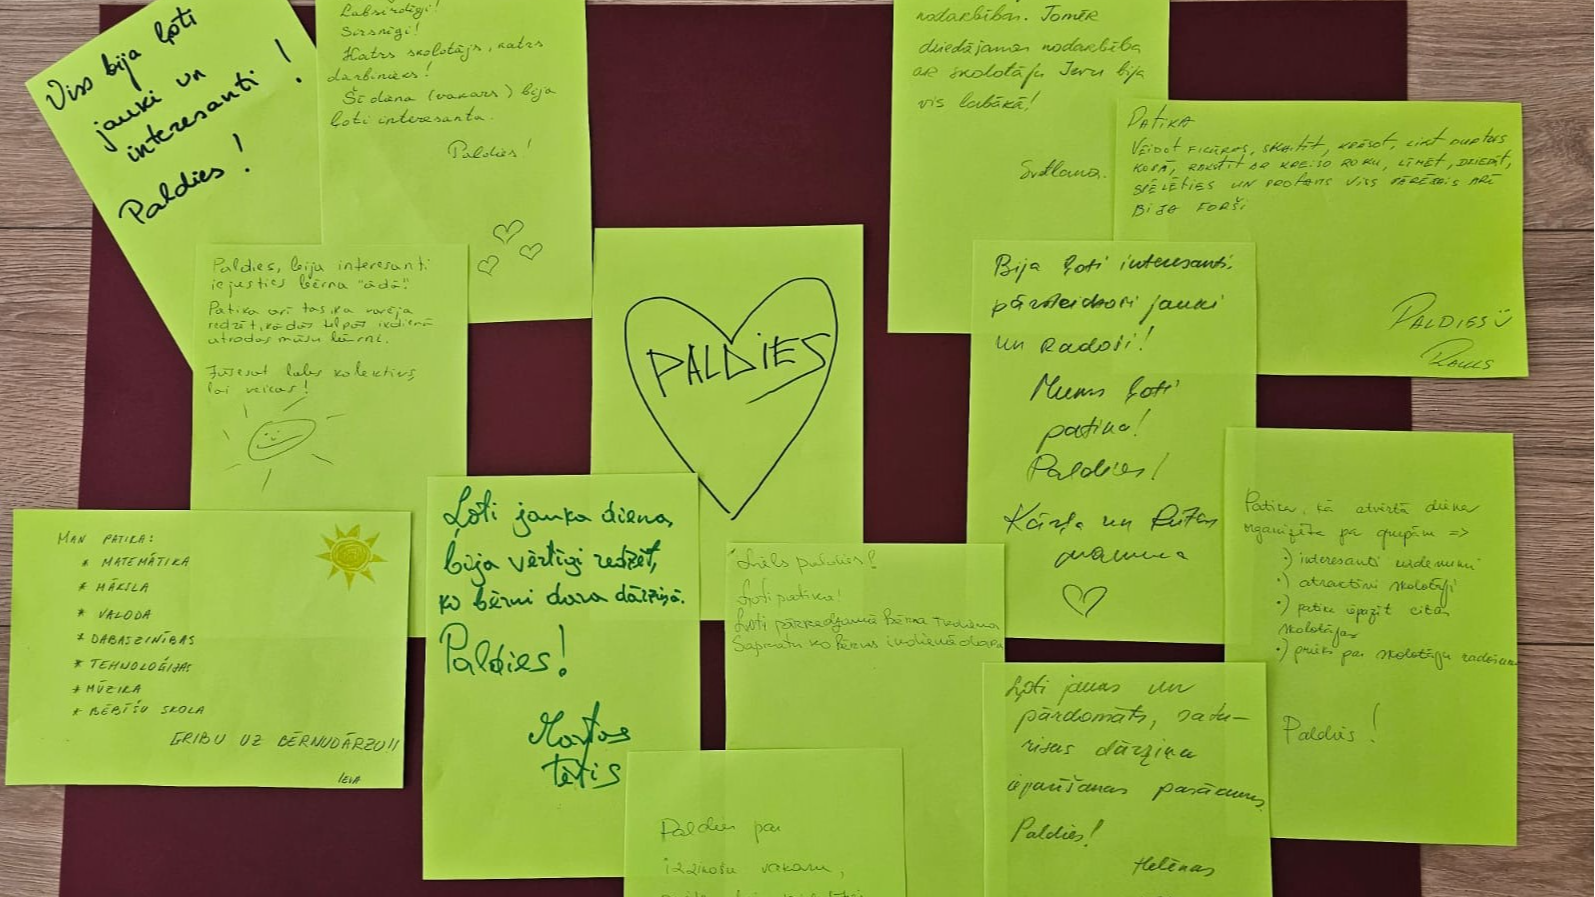 Viss bija ļoti
jauki un
interesanti!
Paldies!
Labsirdīgi!
Sirsnīgi!
Katrs skolotājs, katrs
darbinieks!
Šī diena (vakars) bija
ļoti interesanta.
Paldies!
nodarbības. Tomēr
dziedājamā nodarbība
ar skolotāju Ievu bija
vis labākā!
Svetlana.
PATIKA
VEIDOT FIGŪRAS, SKAITĪT, KRĀSOT, LIKT BURTUS
KOPĀ, RAKSTĪT AR KREISO ROKU, LĪMĒT, DZIEDĀT,
SPĒLĒTIES UN PROTAMS VISS PĀRĒJAIS ARĪ
BIJA FORŠI
PALDIES Ü
Paldies, bija interesanti
iejusties bērna "ādā".
Patika arī tas, ka varēja
redzēt, kādās telpās ikdienā
atrodas mūsu bērni.
Jūsesot labs kolektīvs,
lai veicas!
PALDIES
Bija ļoti interesanti.
pārsteidzoši jauki
un radoši!
Mums ļoti
patika!
Paldies!
Kārļa un Rūtas
mamma
MAN PATIKA:
* MATEMĀTIKA
* MĀKSLA
* VALODA
* DABASZINĪBAS
* TEHNOLOĢIJAS
* MŪZIKA
* BĒBĪŠU SKOLA
GRIBU UZ BĒRNUDĀRZU!!
IEVA
Ļoti jauka diena,
bija vērtīgi redzēt,
ko bērni dara dārziņā.
Paldies!
Martas
tētis
Liels paldies!
Ļoti patika!
Ļoti pārredzamā bērna ikdiena
Sapratu ko bērns ikdienā dara
Patika, kā atvērtā diena
organizēta pa grupām =>
•) interesanti uzdevumi
•) atraktīvi skolotāji
•) patika iepazīt citas
skolotājas
•) prieks par skolotāju radošumu
Paldies!
Ļoti jauks un
pārdomāts, satu-
risks dārziņa
iepazīšanas pasākums.
Paldies!
Helēnas
Paldies par
izzinošu vakaru,